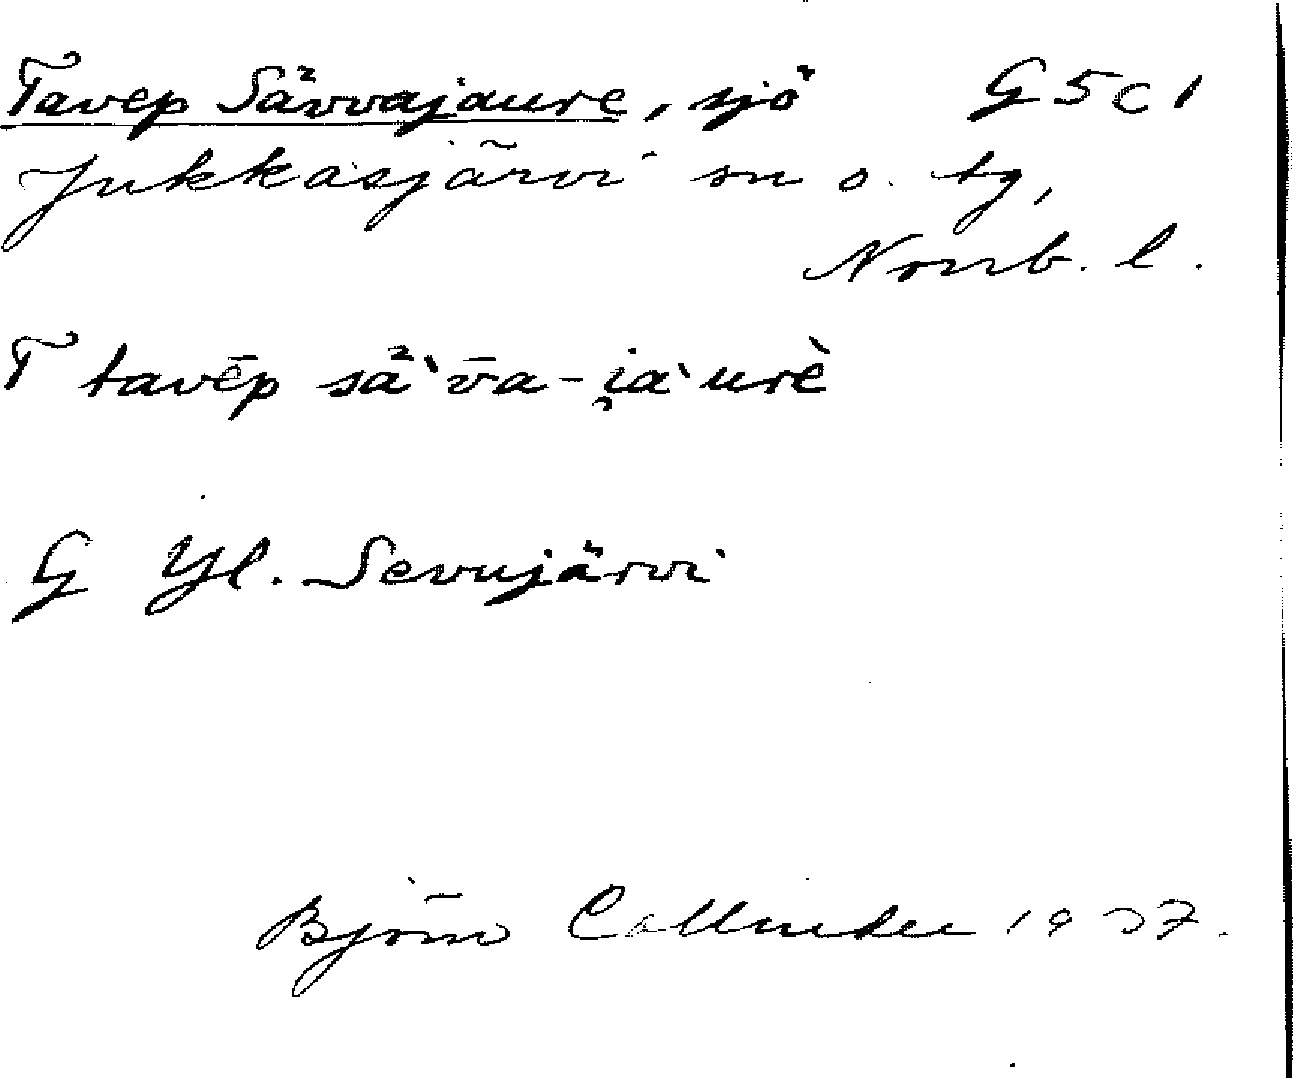 Tavep Sävvajaure, sjö G5c1
Jukkasjärvi sn o. tg,
Norrb. l.
T tavēp sä̀v̄a-i̯a`urè
G Yl. Sevujärvi
Björn Collinder 1937.